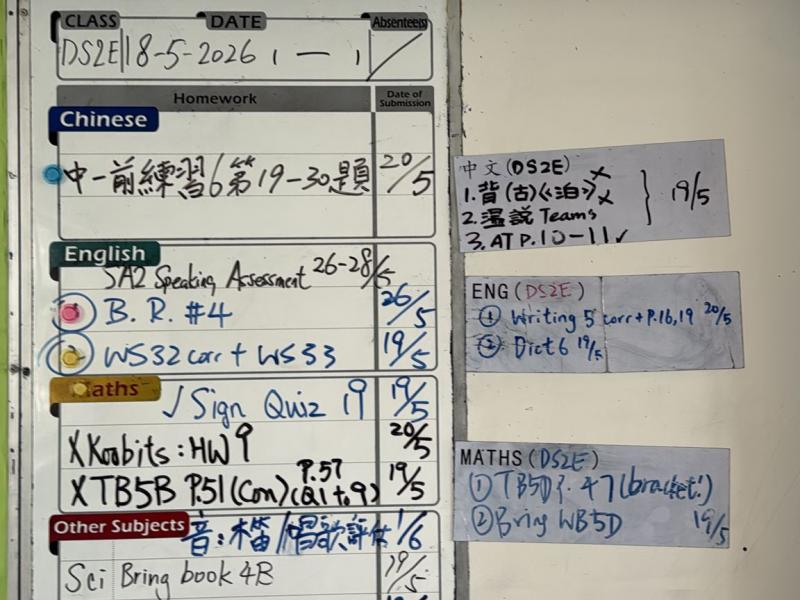 CLASS DATE Absentee(s)
DS2E 18-5-2026 ( 一 )
Homework Date of Submission
Chinese
中一前練習6第19-30題 20/5
English
SA2 Speaking Assessment 26-28/5
B. R. #4 26/5
WS32 corr + WS33 19/5
Maths
√ Sign Quiz 19 19/5
X Koobits: HW 9 20/5
X TB5B P.51 (Con) (P.57 Q1 to 9) 19/5
Other Subjects
音: 木笛/唱歌評估 1/6
Sci Bring book 4B 19/5
中文(DS2E)
1. 背(古)《泊》 x
2. 溫說 Teams x
3. AT P.10-11 ✓
19/5
ENG (DS2E)
① Writing 5 corr + P.16,19 20/5
② Dict 6 19/5
MATHS (DS2E)
① TB5D P. 47 (bracket!)
② Bring WB5D 19/5